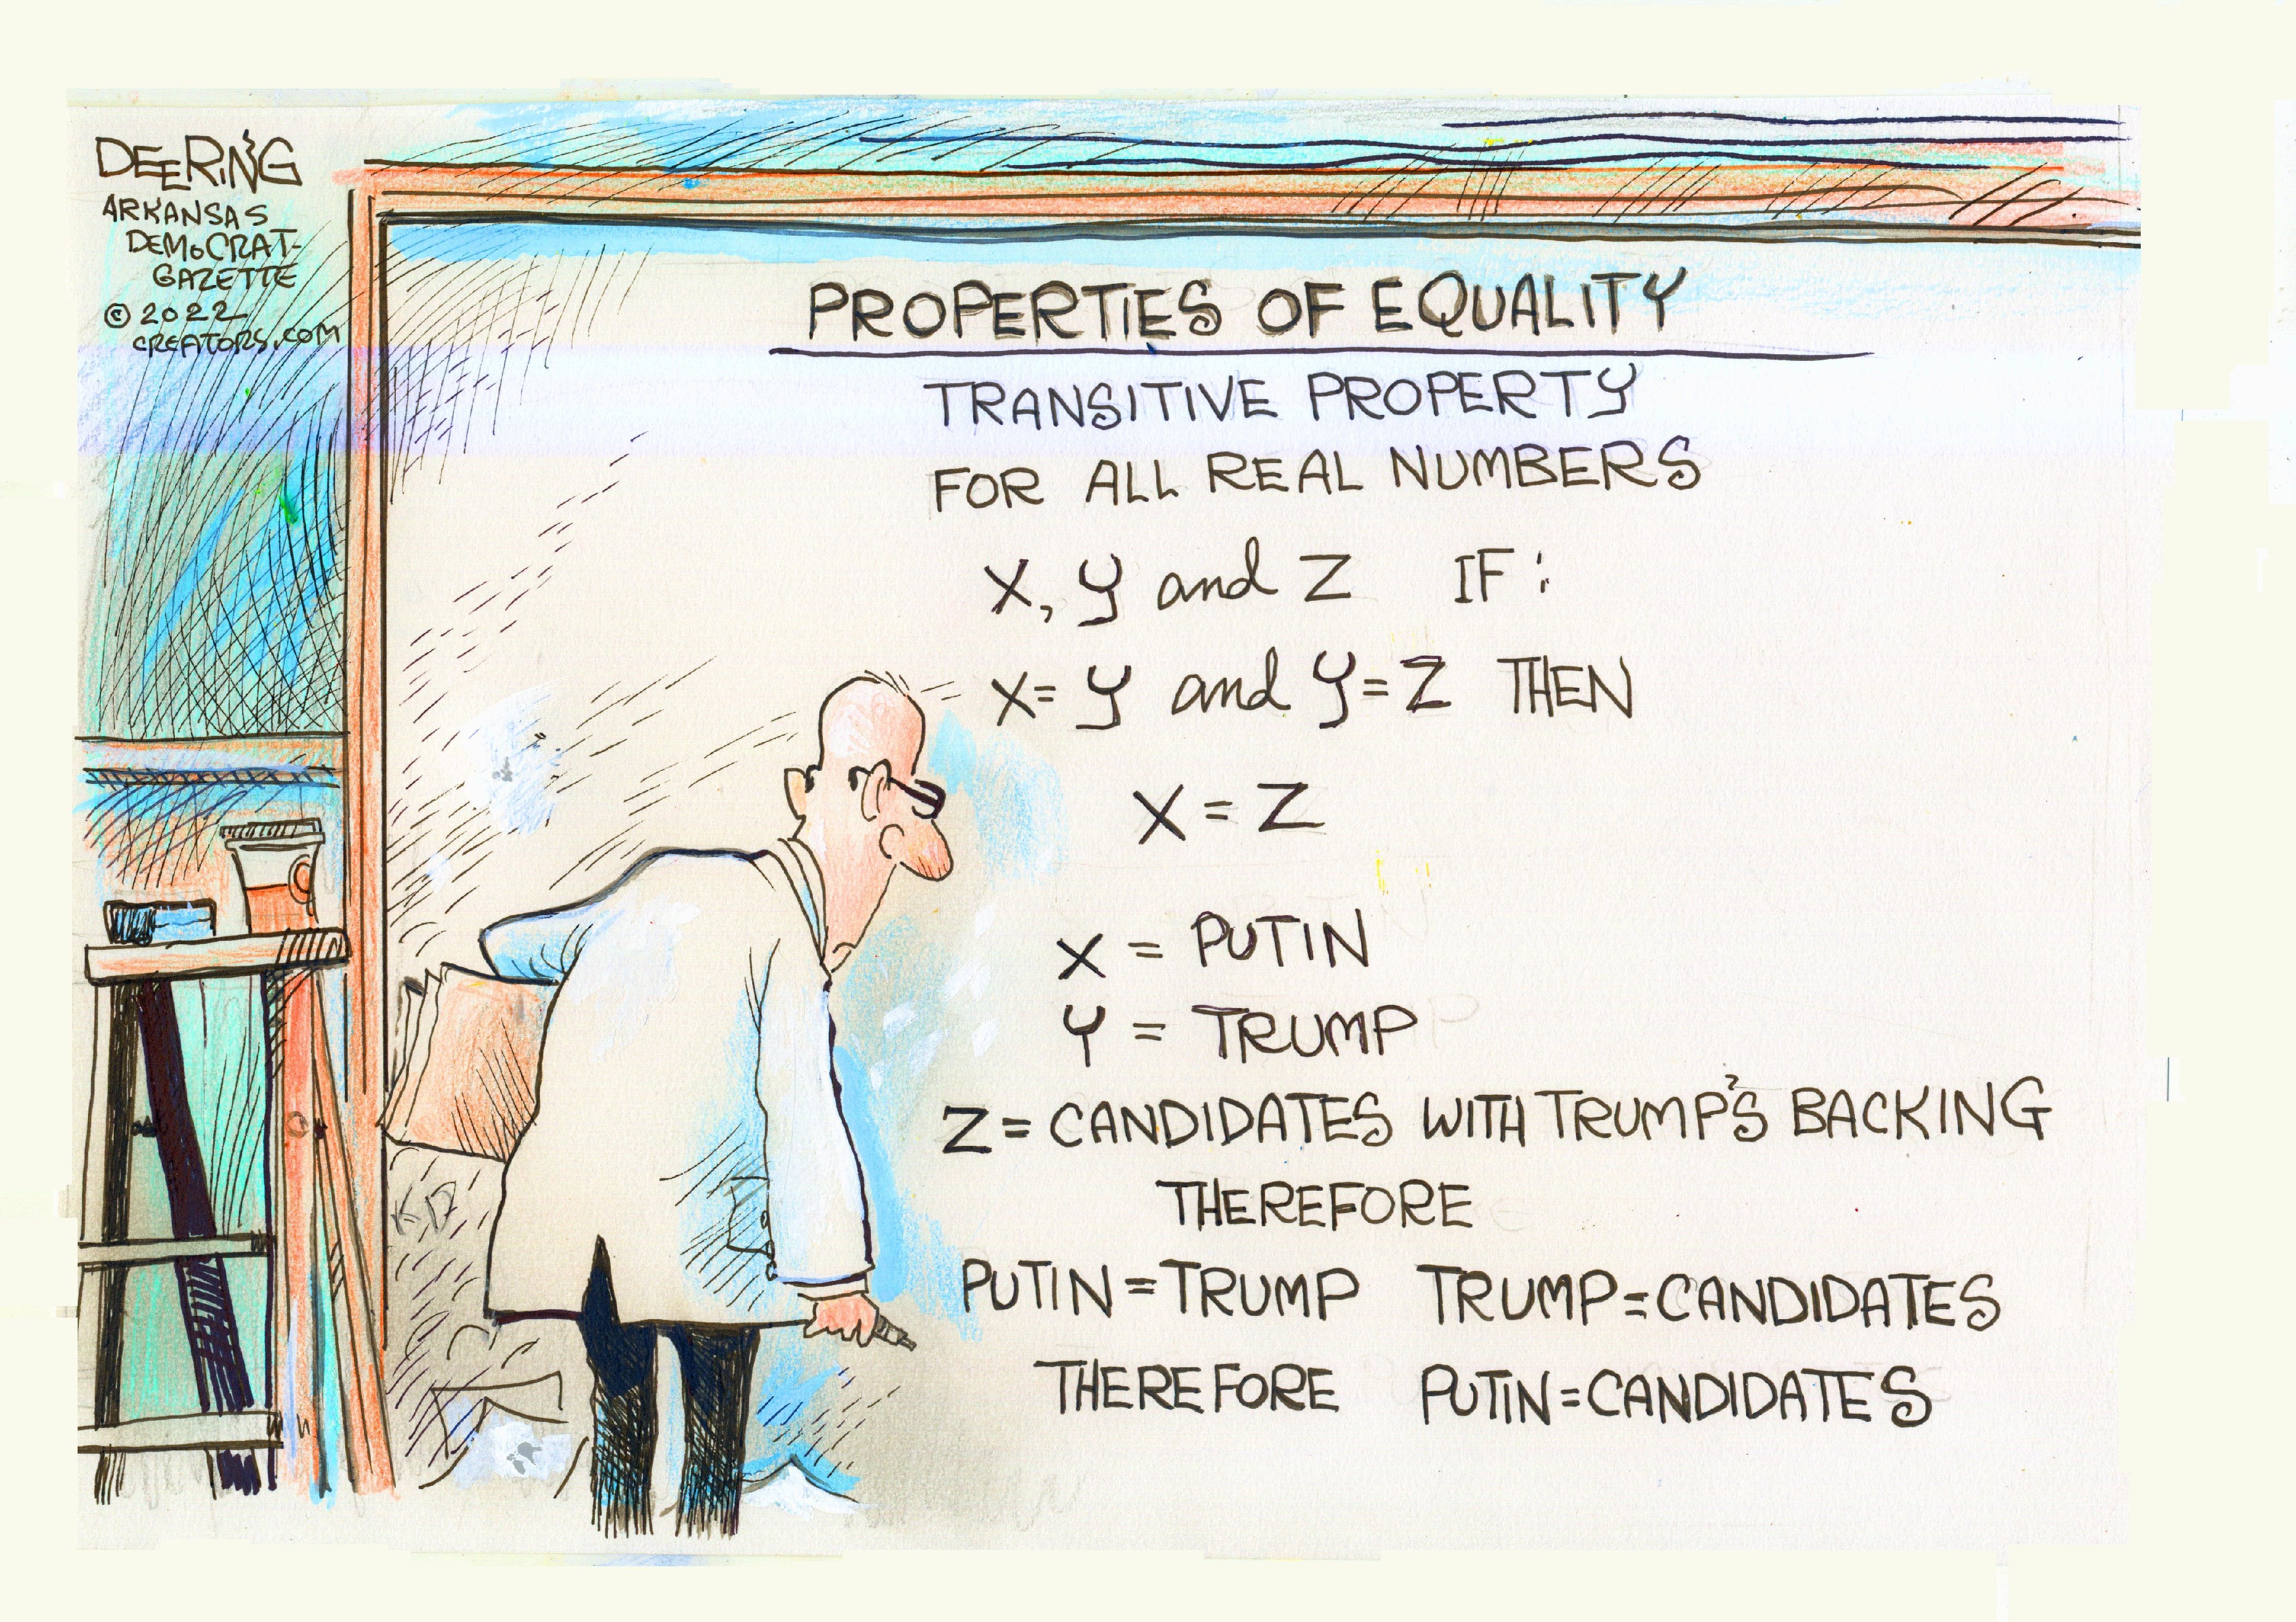 DEERING
ARKANSAS
DEMOCRAT-
GAZETTE
© 2022
CREATORS.COM
PROPERTIES OF EQUALITY
TRANSITIVE PROPERTY
FOR ALL REAL NUMBERS
X, Y and Z IF:
X=Y and Y=Z THEN
X=Z
X = PUTIN
Y = TRUMP
Z = CANDIDATES WITH TRUMP'S BACKING
THEREFORE
PUTIN=TRUMP TRUMP=CANDIDATES
THEREFORE PUTIN=CANDIDATES